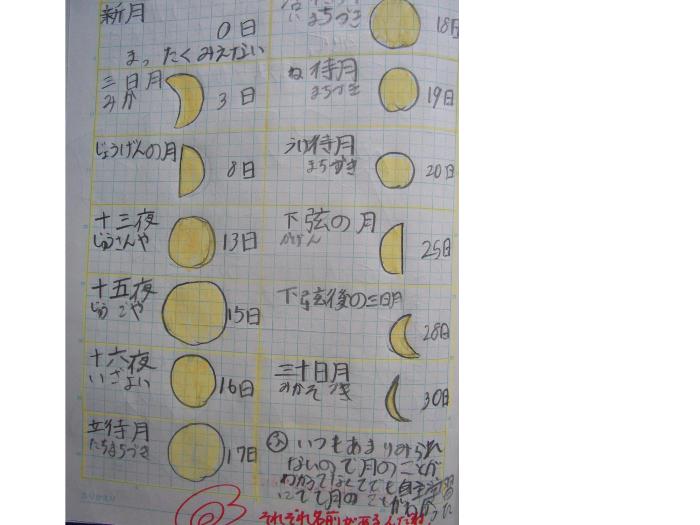 新月
0日
まったくみえない
三日月
みか
3日
じょうげんの月
8日
十三夜
じゅうさんや
13日
十五夜
じゅうごや
15日
十六夜
いざよい
16日
立待月
たちまちづき
17日
まちづき
18日
ね待月
まちづき
19日
待月
まちづき
20日
下弦の月
かげん
25日
下弦後の三日月
28日
三十日月
みかそづき
30日
ふ いつもあまりみられ
ないので月のことが
わかって
月の
それぞれ名前が